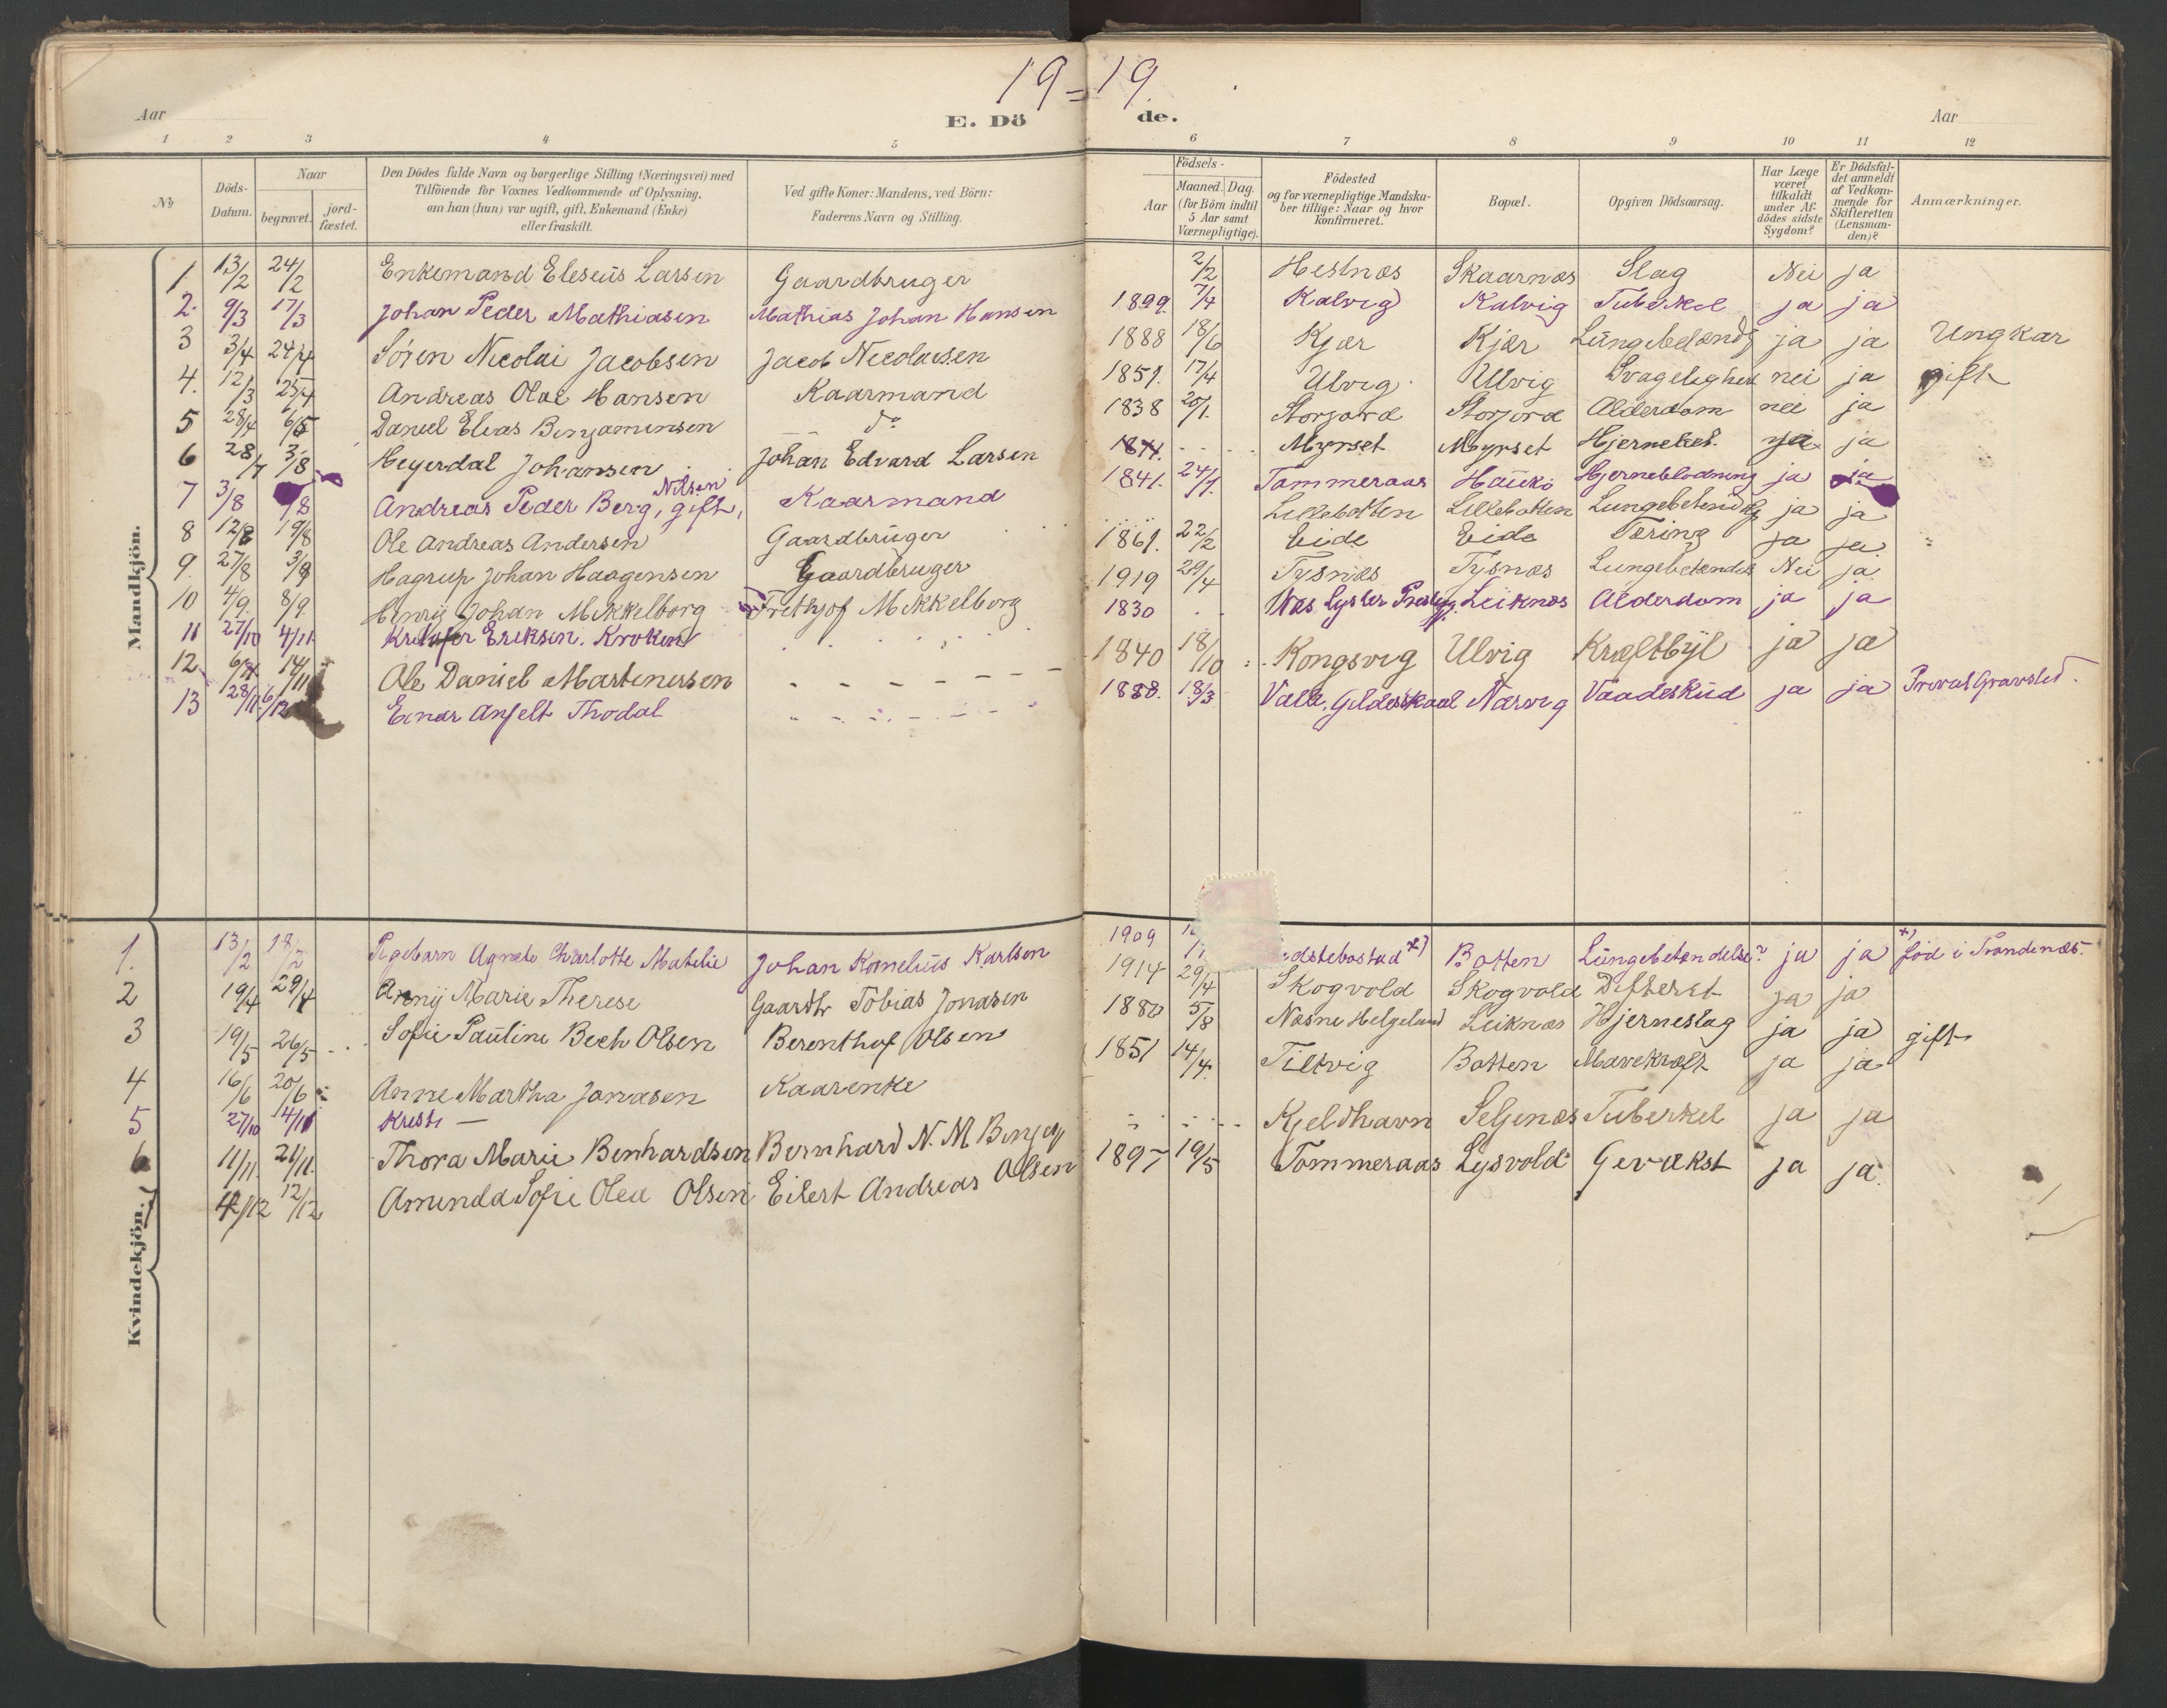 19=19.
Aar
E. Dö
de.
Aar
1 2 3 4 5 6 7 8 9 10 11 12
No
Döds-Datum.
Naar
begravet.
jord-fæstet.
Den Dödes fulde Navn og borgerlige Stilling (Næringsvei) med
Tilföiende for Voxnes Vedkommende af Oplysning,
om han (hun) var ugift, gift, Enkemand (Enke)
eller fraskilt.
Ved gifte Koner: Mandens, ved Börn:
Faderens Navn og Stilling.
Födsels-
Aar
Maaned. Dag.
(for Börn indtil
5 Aar samt
Værnepligtige).
Födested
og for værnepligtige Mandska-
ber tillige: Naar og hvor
konfirmeret.
Bopæl.
Opgiven Dödsaarsag.
Har Læge
været
tilkaldt
under Af-
dödes sidste
Sygdom?
Er Dödsfal-
det anmeldt
af Vedkom-
mende for
Skifteretten
(Lensman-
den)?
Anmærkninger.
Mandkjön.
1 13/2 24/2 Enkemand Eleseus Larsen Gaardbruger 2/2 Hestnæs Skaarnæs Slag Nei ja
2. 9/3 17/3 Johan Peder Mathiasen Mathias Johan Hansen 1899. 7/4 Kalvig Kalvig Tuberkel ja ja
3 3/4 24/4 Sören Nicolai Jacobsen Jacob Nicolaisen 1888 18/6 Kjær Kjær ja ja Ungkar
4. 12/3 25/4 Andreas Olai Hansen Kaarmand 1851. 17/4 Ulvig Ulvig Svagelighed nei ja gift
5 28/4 6/5 Daniel Elias Benjaminsen do 1838 20/1. Storjord Storjord Alderdom nei ja
6 28/7 3/8 Heyerdal Johansen Johan Edvard Larsen Myrset Myrset ja ja
7 3/8 /8 Andreas Peder Berg Nilsen, gift, Kaarmand 1841. 24/1. Tømmeraas Haukö Hjerneblödning ja ja
8 12/8 19/8 Ole Andreas Andersen Gaardbruger Lillebotten Lillebotten ja ja
9. 27/8 3/9 Hagrup Johan Haagensen Gaardbruger 1861. 22/2 Eide Eide Tæring ja ja
10 4/9. 8/9. Henrÿ Johan Mikkelborg Frithjof Mikkelborg 1919 29/4 Tysnæs Tysnæs Lungebetændels Nei ja
11 27/10 4/11 Kristofer Eriksen. Kroken 1830 Næs Lyster Leiknæs Alderdom ja ja
12 14/11 Ole Daniel Martinussen 1840 18/10 Kongsvig Ulvig Kræftbÿl ja ja
13 28/11 6/12 Einar Anfelt Thodal 1888. 18/3 Valle, Gildeskaal Narvig Vaadeskud ja ja Privat Gravsted.
Kvindekjön.
1. 13/2 18/2 Pigebarn Agnete Charlotte Matelie Johan Kornelius Karlsen 1909 edstebostad x) Botten Lungebetændelse? ja ja x) föd i Trondenæs.
2 19/4 29/4 Annÿ Marie Therese Gaardbr Tobias Jonasen 1914 29/4 Skogvold Skogvold Difterit ja ja
3 19/5 26/5 Sofie Pauline Bech Olsen Berenthof Olsen 1880 5/8 Næsne Helgeland Leiknæs Hjerneslag ja ja gift
4 16/6 20/6 Anne Martha Jonasen Kaarenke 1851 14/4. Tiltvig Botten Mavekræft ja ja
5 27/10 4/11 Kristi — Kjeldhavn Seljenæs Tuberkel ja ja
6 11/11. 21/11. Thora Marie Benhardsen Bernhard N. M 1897 19/5 Tommeraas Lysvold Gevækst ja ja.
7 4/12 12/12 Amunda Sofie Olea Olsen Eilert Andreas Olsen